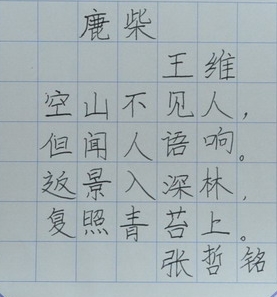 鹿柴
王维
空山不见人,
但闻人语响。
返景入深林,
复照青苔上。
张哲铭